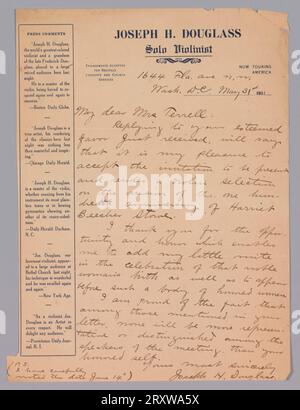 PRESS COMMENTS
"Joseph H. Douglass,
the world's greatest colored
violinist and a grandson
of the late Frederick Doug-
lass, played to a large
audience here last
night.
He is a master of the
violin, being forced to re-
spond again and again to
encores."
—Boston Daily Globe.
"Joseph H. Douglass
is a true artist, his rendering
of the classics here last
night was nothing less
than masterful and magni-
"
—Chicago Daily Herald.
"Joseph H. Douglass
is a master of the violin,
—Daily Herald, Durham,
N. C.
"Jos. Douglass,
violinist, appear-
ed to a large audience at
Bethel Church last night.
his technique is wonderful
and he
was recalled again
and again."
—New York Age.
"As a violinist Jos.
Douglass is an Artist in
every respect. He will
delight any audience."
—Providence Daily Jour-
nal, R. I.
JOSEPH H. DOUGLASS
Solo Violinist
ENGAGEMENTS ACCEPTED
FOR RECITALS
CONCERTS AND CHURCH
SERVICES
NOW TOURING
AMERICA
1644 Fla. ave n.w.
Wash. D.C. May 31st 1911
My dear Mrs Terrell:
Replying to your esteemed
favor just received, will say
that it is my pleasure to
accept the invitation to be present
and render a violin selection
on the occasion of the one hun-
dredth anniversary of Harriet
Beecher Stowe.
I thank you for the oppor-
tunity and honor which enables
me to add my little mite
in the celebration of that noble
woman's birth as well as to appear
before such a body of honored women
I am proud of the fact that
among those mentioned in your
letter, none will be more represen-
tative or distinguished among the
speakers of the meeting than your
honored self.
Yours most sincerely
Joseph H. Douglass
(P.S.
I have carefully
noted the date June 14th)
alamy
2RXWA5X